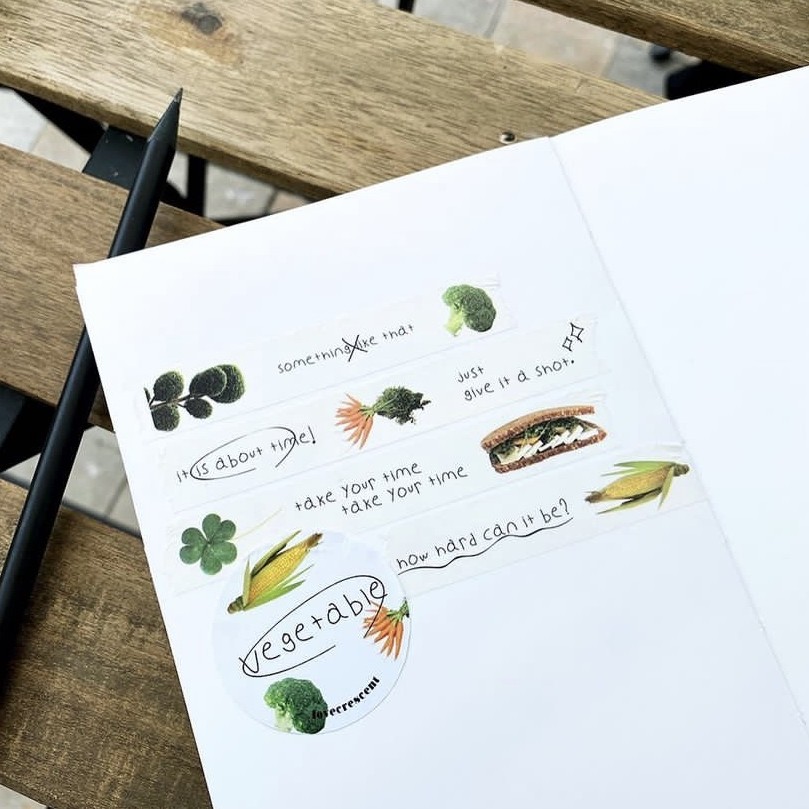 something like that
just
give it a shot.
it is about time!
take your time
take your time
how hard can it be?
vegetable
lovecrescent